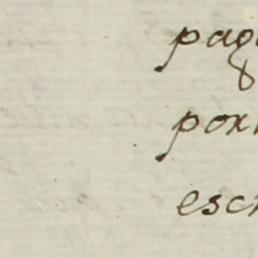 pag
por
escr